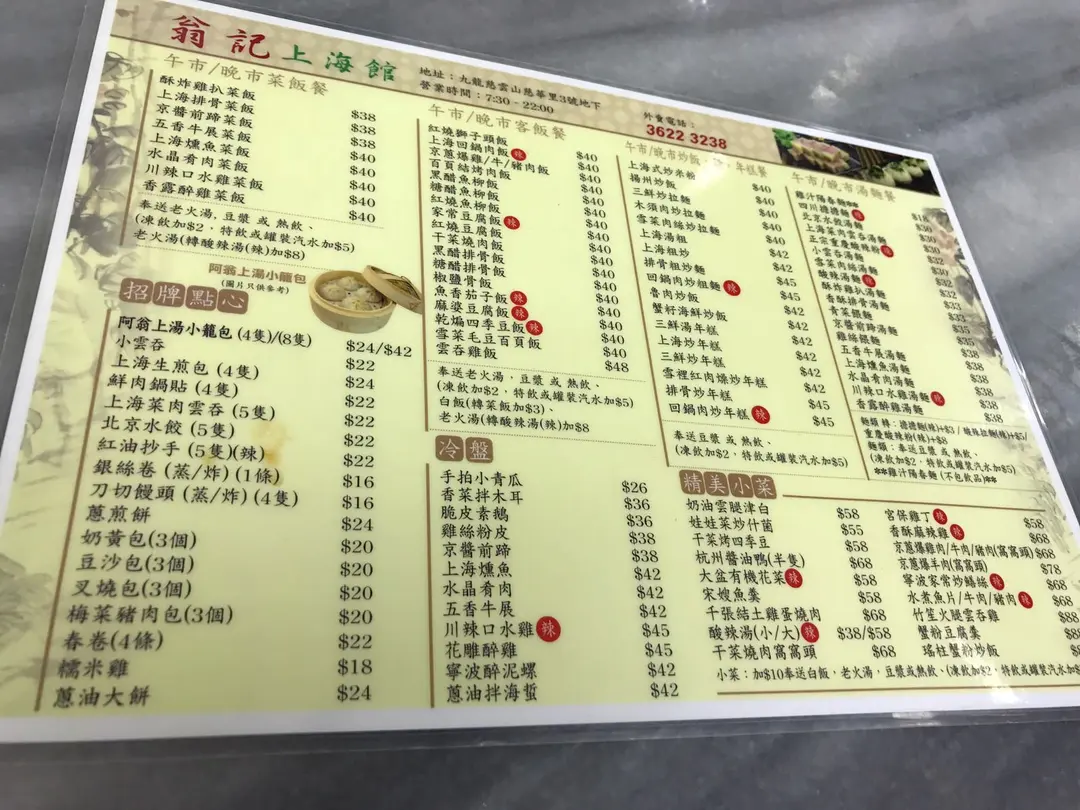 翁記上海館
地址：九龍慈雲山慈華里3號地下
營業時間：7:30 - 22:00
外賣電話：
3622 3238
午市/晚市菜飯餐
酥炸雞扒菜飯 $38
上海排骨菜飯 $38
京醬前蹄菜飯 $38
五香牛展菜飯 $40
上海燻魚菜飯 $40
水晶肴肉菜飯 $40
川辣口水雞菜飯 $40
香露醉雞菜飯 $40
奉送老火湯,豆漿 或 熱飲、
(凍飲加$2，特飲或罐裝汽水加$5)
老火湯(轉酸辣湯(辣)加$8)
阿翁上湯小籠包
(圖片只供參考)
招牌點心
阿翁上湯小籠包 (4隻)/(8隻) $24/$42
小雲吞 $22
上海生煎包 (4隻) $24
鮮肉鍋貼 (4隻) $22
上海菜肉雲吞 (5隻) $22
北京水餃 (5隻) $22
紅油抄手 (5隻)(辣) $22
銀絲卷 (蒸/炸) (1條) $16
刀切饅頭 (蒸/炸) (4隻) $16
蔥煎餅 $24
奶黃包(3個) $20
豆沙包(3個) $20
叉燒包(3個) $20
梅菜豬肉包(3個) $20
春卷(4條) $22
糯米雞 $18
蔥油大餅 $24
午市/晚市客飯餐
紅燒獅子頭飯 $40
上海回鍋肉飯 辣 $40
京蔥爆雞/牛/豬肉飯 $40
百頁結烤肉飯 $40
黑醋魚柳飯 $40
糖醋魚柳飯 $40
紅燒魚柳飯 $40
家常豆腐飯 辣 $40
紅燒豆腐飯 $40
干菜燒肉飯 $40
黑醋排骨飯 $40
糖醋排骨飯 $40
椒鹽骨飯 $40
魚香茄子飯 辣 $40
麻婆豆腐飯 辣 $40
乾煸四季豆飯 辣 $40
雪菜毛豆百頁飯 $40
雲吞雞飯 $48
奉送老火湯，豆漿 或 熱飲、
(凍飲加$2，特飲或罐裝汽水加$5)
白飯(轉菜飯加$3)、
老火湯(轉酸辣湯(辣)加$8
冷盤
手拍小青瓜 $26
香菜拌木耳 $36
脆皮素鵝 $36
雞絲粉皮 $38
京醬前蹄 $38
上海燻魚 $42
水晶肴肉 $42
五香牛展 $42
川辣口水雞 辣 $45
花雕醉雞 $45
寧波醉泥螺 $42
蔥油拌海蜇 $42
午市/晚市炒飯 年糕餐
上海式炒米粉 $40
揚州炒飯 $40
三鮮炒拉麵 $40
木須肉炒拉麵 $40
雪菜肉絲炒拉麵 $40
上海湯粗 $42
上海粗炒 $42
排骨粗炒麵 $45
回鍋肉炒粗麵 辣 $45
魯肉炒飯 $42
蟹籽海鮮炒飯 $42
三鮮湯年糕 $42
上海炒年糕 $42
三鮮炒年糕 $42
雪裡紅肉燥炒年糕 $42
排骨炒年糕 $45
回鍋肉炒年糕 辣 $45
奉送豆漿 或 熱飲、
(凍飲加$2，特飲或罐裝汽水加$5)
午市/晚市湯麵餐
雞汁陽春麵** $18
四川擔擔麵 辣 $30
北京水餃湯麵 $30
上海菜肉雲吞湯麵 $30
正宗重慶酸辣粉 辣
小雲吞湯麵
雪菜肉絲湯麵 $32
酸辣湯麵 辣
酥炸雞扒湯麵
香酥排骨湯麵
青菜餵麵
京醬前蹄湯麵 $35
雞絲餵麵
五香牛展湯麵 $38
上海燻魚湯麵 $38
水晶肴肉湯麵 $38
川辣口水雞湯麵 辣 $38
香露醉雞湯麵 $38
麵類 轉：擔擔麵(辣)+$3 / 酸辣拉麵(辣)+$5/
重慶酸辣粉(辣)+$8
麵類：奉送豆漿 或 熱飲、
(凍飲加$2，特飲或罐裝汽水加$5)
**雞汁陽春麵 (不包飲品)**
精美小菜
奶油雲腿津白 $58
娃娃菜炒什菌 $55
干菜烤四季豆 $58
杭州醬油鴨(半隻) $68
大盆有機花菜 辣 $58
宋嫂魚羹 $58
千張結土雞蛋燒肉 $68
酸辣湯(小/大) 辣 $38/$58
干菜燒肉窩窩頭 $68
宮保雞丁 辣 $58
香酥麻辣雞 辣 $68
京蔥爆雞肉/牛肉/豬肉(窩窩頭) $68
京蔥爆羊肉(窩窩頭) $78
寧波家常炒鱔絲 辣 $68
水煮魚片/牛肉/豬肉 辣 $68
竹笙火腿雲吞雞 $88
蟹粉豆腐羹
瑤柱蟹粉炒飯
小菜：加$10奉送白飯，老火湯，豆漿或熱飲、(凍飲加$2，特飲或罐裝汽水加$